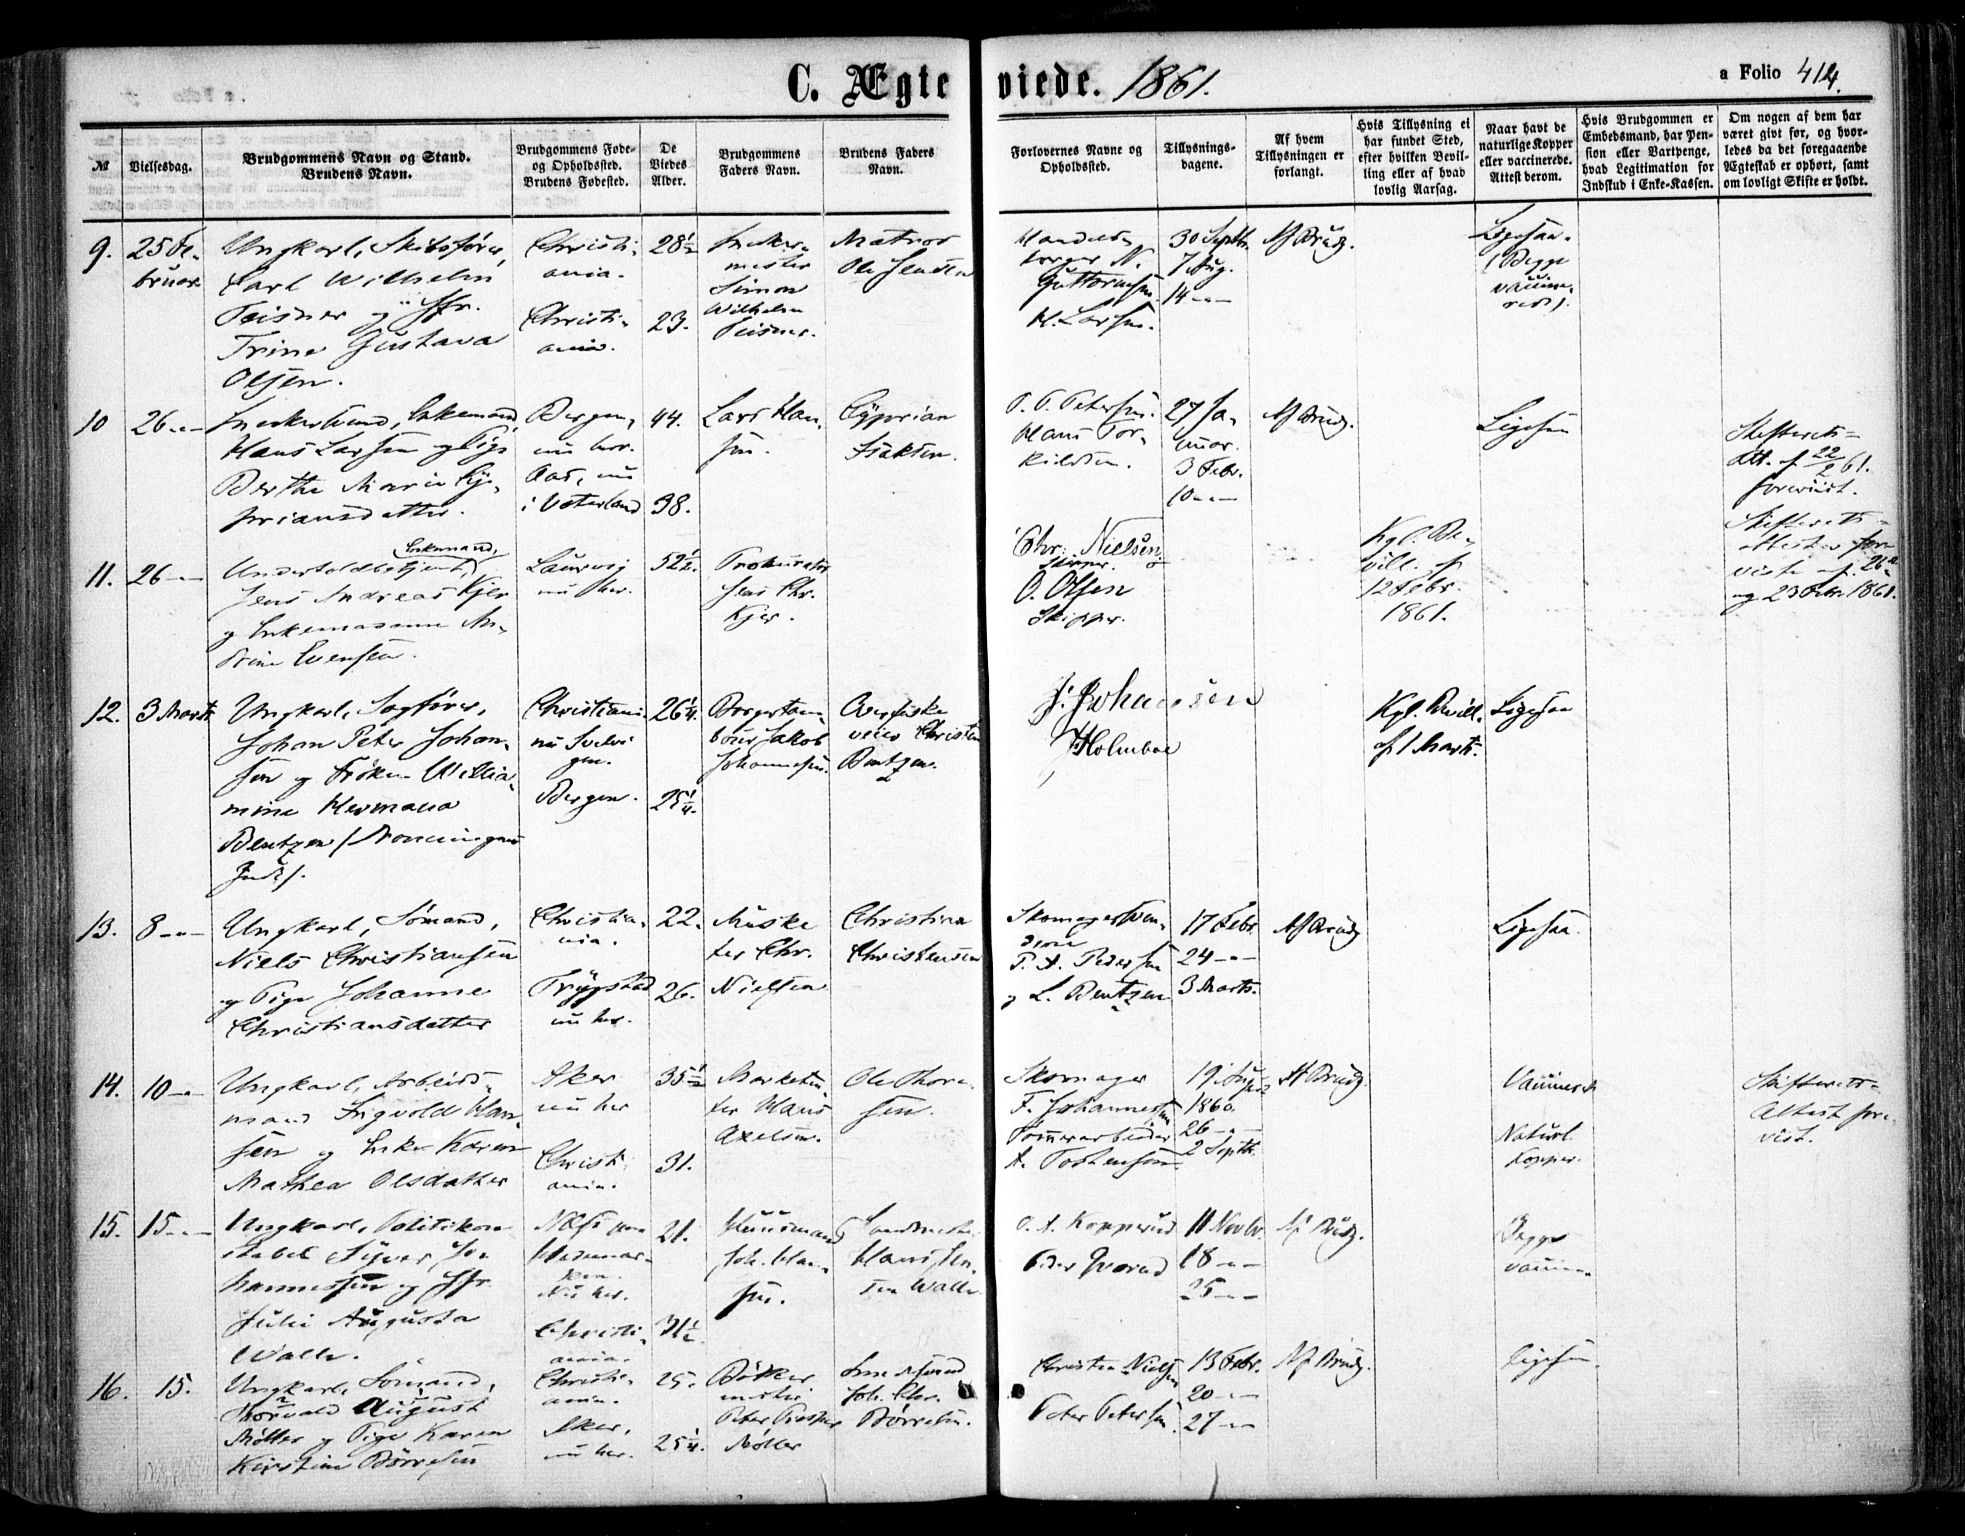 C. Ægteviede. 1861.
a Folio 414.
№
Vielsesdag.
Brudgommens Navn og Stand.
Brudens Navn.
Brudgommens Føde-
og Opholdssted.
Brudens Fødested.
De
Viedes
Alder.
Brudgommens
Faders Navn.
Brudens Faders
Navn.
Forlovernes Navne og
Opholdssted.
Tillysnings-
dagene.
Af hvem
Tillysningen er
forlangt.
Hvis Tillysning ei
har fundet Sted,
efter hvilken Bevil-
ling eller af hvad
lovlig Aarsag.
Naar havt de
naturlige Kopper
eller vaccinerede.
Attest derom.
Hvis Brudgommen er
Embedsmand, har Pen-
sion eller Vartpenge,
hvad Legitimation for
Indskud i Enke-Kassen.
Om nogen af dem har
været givt før, og hvor-
ledes da det foregaaende
Ægteskab er ophørt, samt
om lovligt Skifte er holdt.
9.
25 Fe-
bruar
Ungkarl,
Carl Wilhelm
Teisner og Jfr.
Trine Gustava
Olsen.
Christi-
ania.
Christi-
ania.
28½
23.
mester
Simon
Wilhelm
Teisner.
Matros
Ole Jensen
Handels-
borger N.
Guttormsen.
H. Larsen.
30 Septbr.
7 Aug.
14 -"-
Af Brudg.
Ligesaa.
(Begge
vaccine-
rede).
10
26 -"-
Snekkersvend, Enkemand,
Hans Larsen og Pige
Berthe Marie Cy-
priansdatter.
Bergen,
nu her.
Aas, nu
i Vaterland
44.
38.
Lars Han-
sen.
Cyprian
Isaksen.
O. P. Petersen.
Hans Tor-
kildsen.
27 Ja-
nuar.
3 Febr.
10 -"-
Af Brudg.
Ligesaa
Skifterets-
Att. af 22/2 61.
forevist.
11.
26 -"-
Enkemand,
Undertoldbetjent,
Jens Andreas Kjer
og Enkemadame An-
drine Evensen.
Laurvig
nu her.
52½.
Prokurator
Jens Chr.
Kjer.
Chr: Nielsen
O. Olsen
Skipper.
Kgl. Be-
vill. af
12 Febr.
1861.
Skifterets-
attester fore
viste af 26
og 23 Febr. 1861.
12.
3 Marts
Ungkarl, Sagfører,
Johan Peter Johan-
sen og Frøken Willia-
mine Hermana
Bentzen (Dronningens
Christiania
nu Svelvi-
gen.
Bergen.
26¼.
25¼.
Borgertam-
bour Jakob
Johannesen.
Overfiske
veier Christen
Bentzen.
J: Johansen
Holmboe
Kgl. Bevill.
af 1 Marts.
Ligesaa
13.
8 -"-
Ungkarl, Sømand,
Niels Christiansen
og Pige Johanne
Christiansdatter
Christia-
nia.
Trygstad
nu her.
22.
26.
Muske
ter Chr.
Nielsen
Christian
Christensen
Skomagersven-
dene
P. A. Pedersen
og L. Bentzen
17 Febr.
24 -"-
3 Marts.
Af Brudg
Ligesaa.
14.
10 -"-
Ungkarl, Arbeids-
mand Sigvold Han-
sen og Enke Karen
Mathea Olsdatter
Aker
nu her
Christi-
ania.
35½
31.
Marketen-
ter Hans
Axelsen.
Ole Thore-
sen.
Skomager
F. Johannessen
Tømmerarbeider
A. Torstensen.
19 August
1860.
26 -"-
2 Septbr.
Af Brudg.
Vaccinerede
Naturl.
Kopper.
Skifterets-
Attest fore-
vist.
15.
15 -"-
Ungkarl, Politikon-
stabel Syver Jo-
hannessen og Jfr.
Julie Augusta
Walle.
Næs paa
Hedemar-
ken.
Nu her.
Christi-
ania.
21.
31½.
Huusmand
Joh. Han-
sen.
Hans Jen-
sen Walle.
O. A. Kopperud
Peder Qværud
11 Novbr.
18 -"-
25 -"-
Af Brudg.
Begge
vaccine-
16.
15.
Ungkarl, Sømand,
Thorvald August
Møller og Pige Karen
Kirstine Børresen
Christi-
ania.
Aker,
nu her.
25.
25¼.
Bøkker
mester
Peter
Møller
Joh. Chr.
Børresen.
Christen Nielsen
Peter Petersen.
13 Febr.
20 -"-
27 -"-
Af Brudg.
Ligesaa.